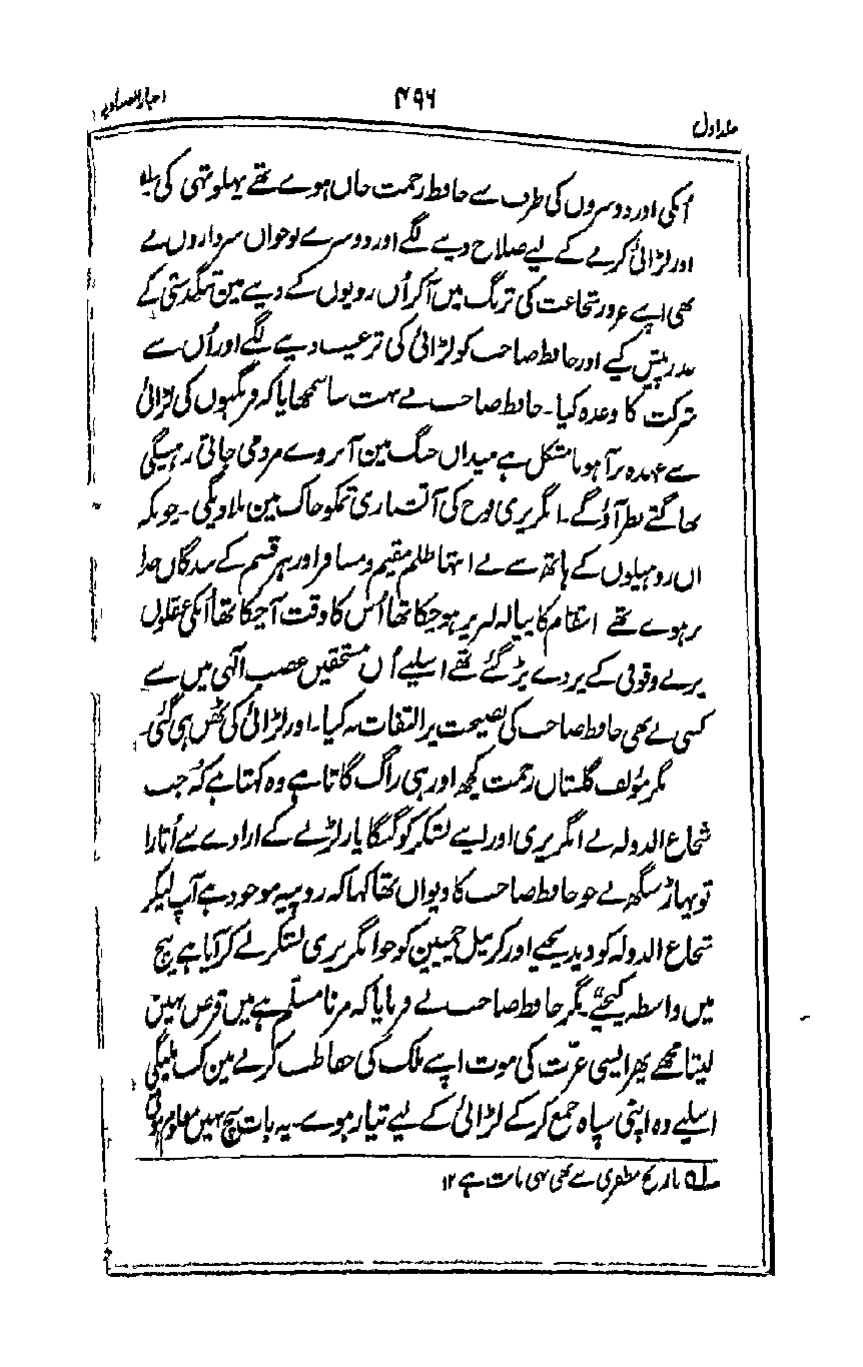 جلد اول ۴۹۶ اخبار الصنادید
اُنکی اور دوسروں کی طرف سے حافظ رحمت خاں ہوے تھے پہلوتہی کی ؎۱
اور لڑائی کرنے کے لیے صلاح دینے لگے اور دوسرے نوجوان سرداروں نے
بھی اپنے غرور شجاعت کی ترنگ میں آکر اُن روپیوں کے دینے مین تنگدستی کے
عذر پیش کیے اور حافظ صاحب کو لڑائی کی ترغیب دینے لگے اور اُن سے
شرکت کا وعدہ کیا۔ حافظ صاحب نے بہت سا سمجھایا کہ فرنگیوں کی لڑائی
سے عہدہ برآ ہونا مشکل ہے میدان جنگ مین آبروے مردمی جاتی رہیگی
بھاگتے نظر آؤگے۔ انگریزی فوج کی آتشباری تمکو خاک مین ملاویگی۔ چونکہ
ان روہیلوں کے ہاتھ سے بے انتہا ظلم مقیم و مسافر اور ہر قسم کے بندگان خدا
پر ہوے تھے انتقام کا پیالہ لبریز ہوچکا تھا اُس کا وقت آچکا تھا اُنکی عقلوں
پر بے وقوفی کے پردے پڑ گئے تھے اسلیے اُن مستحقین غضب الٰہی میں سے
کسی نے بھی حافظ صاحب کی نصیحت پر التفات نہ کیا۔ اور لڑائی کی ٹھن ہی گئی۔
مگر مؤلف گلستان رحمت کچھ اور ہی راگ گاتا ہے وہ کہتا ہے کہ جب
شجاع الدولہ نے انگریزی اور اپنے لشکر کو گنگا پار لڑنے کے ارادے سے اُتارا
تو پہاڑ سنگھ نے جو حافظ صاحب کا دیوان تھا کہا کہ روپیہ موجود ہے آپ لیکر
شجاع الدولہ کو دیدیجیے اور کرنیل چمپین کو جو انگریزی لشکر لے کر آیا ہے بیچ
میں واسطہ کیجیے۔ مگر حافظ صاحب نے فرمایا کہ مرنا مسلم ہے میں قرض نہین
لیتا مجھے پھر ایسی عزت کی موت اپنے ملک کی حفاظت کرنے مین کب ملیگی
اسلیے وہ اپنی سپاہ جمع کرکے لڑائی کے لیے تیار ہوے۔ یہ بات سچ نہیں معلوم ہوتی
؎۱ تاریخ مظفری سے بھی یہی بات ہے ۱۲